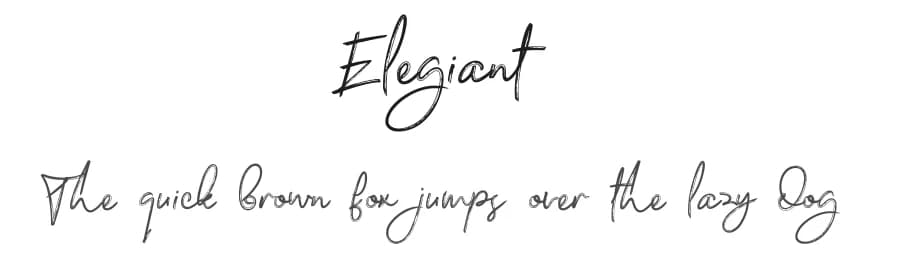 Elegiant
The quick brown fox jumps over the lazy Dog